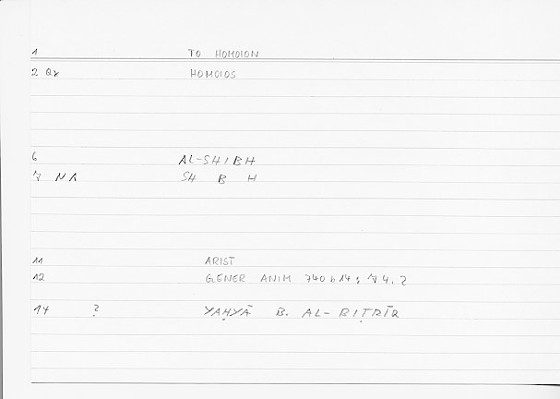 1 TO HOMOION
2 Qy HOMOIOS
6 AL-SHIBH
7 NA SH B H
11 ARIST
12 GENER ANIM 740b14; 74,2
14 ? YAḤYĀ B. AL-BIṬRĪQ